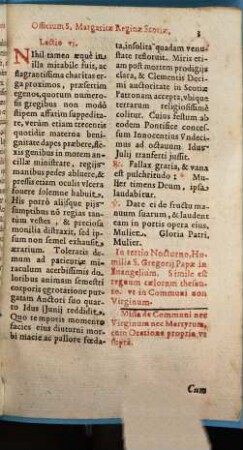 Officium S. Margaritæ Reginæ Scotiæ,
3
Lectio vj.
Nihil tamen æquè in
illa mirabile fuit, ac
flagrantissima charitas erga
proximos, præsertim
egenos, quotum numerosos
greges non modò
stipem affatim suppeditare,
verùm etiam trecentis
quotidie materna benignitate
dapes præbere, flexis
genibus in morem ancillæ
ministrare, regijs
manibus pedes abluere, &
pressis etiam osculi vlcera
fovere solemne habuit.
His porrò alijsque pijs
sumptibus nõ regias tantum
vestes, & pretiosa
monilia distraxit, sed ipsum
non semel exhausit
ærarium. Toleratis demum
ad patientiæ miraculum
acerbissimis doloribus
animam semestri
corporis ægrotatione purgatam
Auctori suo quarto
Idus Iunij reddidit.
Quo temporis momento
facies eius diuturni morbi
macie ac pallore fœda-
ta, insolita quadam venustate
refloruit. Miris etiam
post mortem prodigijs
clara, & Clementis Decimi
authoritate in Scotiæ
Patronam accepta, vbique
terrarum religiosissimè
colitur. Cuius festum ab
eodem Pontifice
Innocentius Vndecimus
ad octauum Idus
Julij transferri jussit.
℟. Fallax gratia, & vana
est pulchritudo : * Mulier
timens Deum, ipsa
laudabitur.
℣. Date ei de fructu manuum
suarum, & laudent
eam in portis opera eius,
Mulier. Gloria Patri,
Mulier.
In tertio Nocturno, Homilia
S. Gregorij Papæ in
Euangelium. Simile est
regnum cælorum thesauro.
vt in Communi non
Virginum.
Missa de Communi nec
Virginum nec Martyrum,
cum Oratione propria, vt
suprà.
Cum